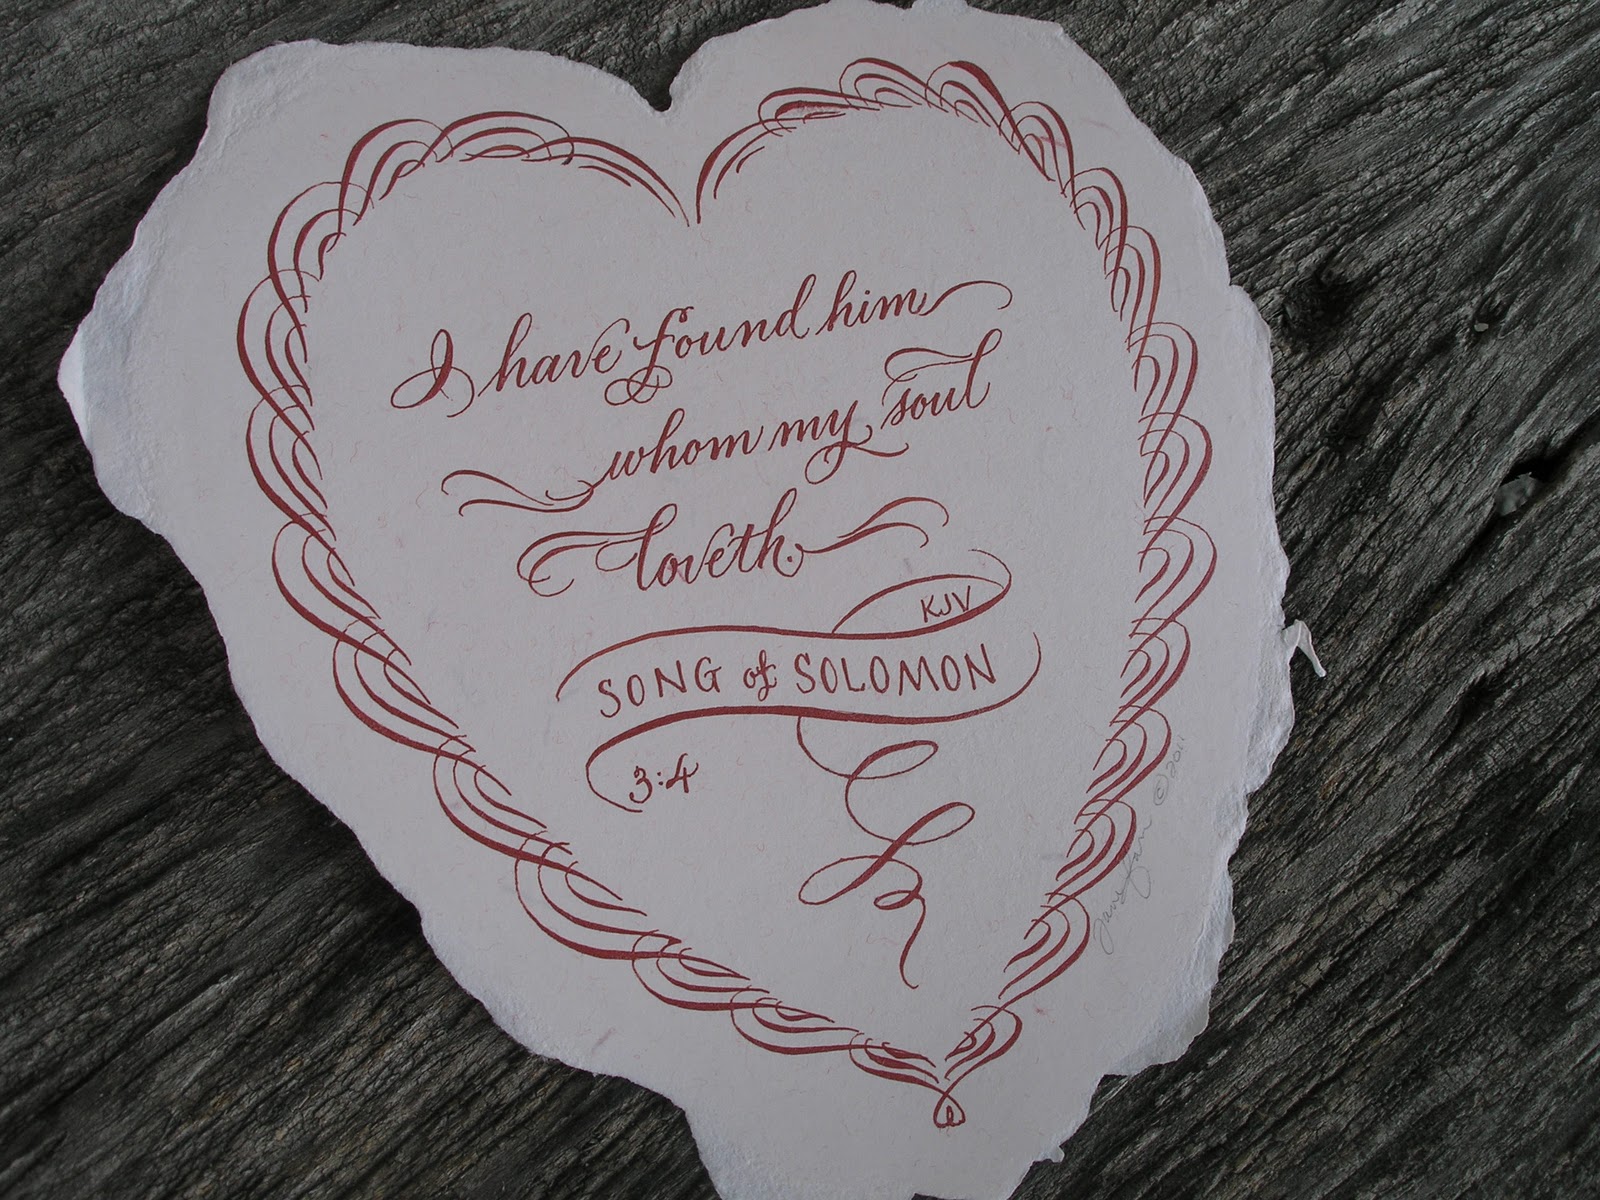 I have found him
whom my soul
loveth.
KJV
SONG of SOLOMON
3:4
© 2011